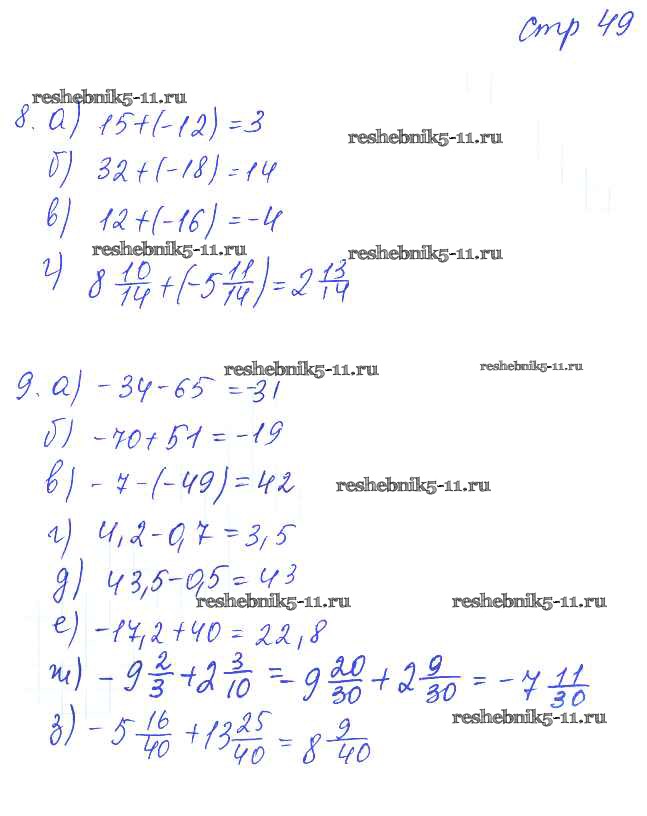 стр 49
reshebnik5-11.ru
8. а) 15+(-12)=3
reshebnik5-11.ru
б) 32+(-18)=14
в) 12+(-16)=-4
reshebnik5-11.ru
reshebnik5-11.ru
г) 8 10/14+(-5 11/14)=2 13/14
reshebnik5-11.ru
reshebnik5-11.ru
9. а) -34-65=-31
б) -70+51=-19
в) -7-(-49)=42
reshebnik5-11.ru
г) 4,2-0,7=3,5
д) 43,5-0,5=43
reshebnik5-11.ru
reshebnik5-11.ru
е) -17,2+40=22,8
ж) -9 2/3+2 3/10=-9 20/30+2 9/30=-7 11/30
reshebnik5-11.ru
з) -5 16/40+13 25/40=8 9/40